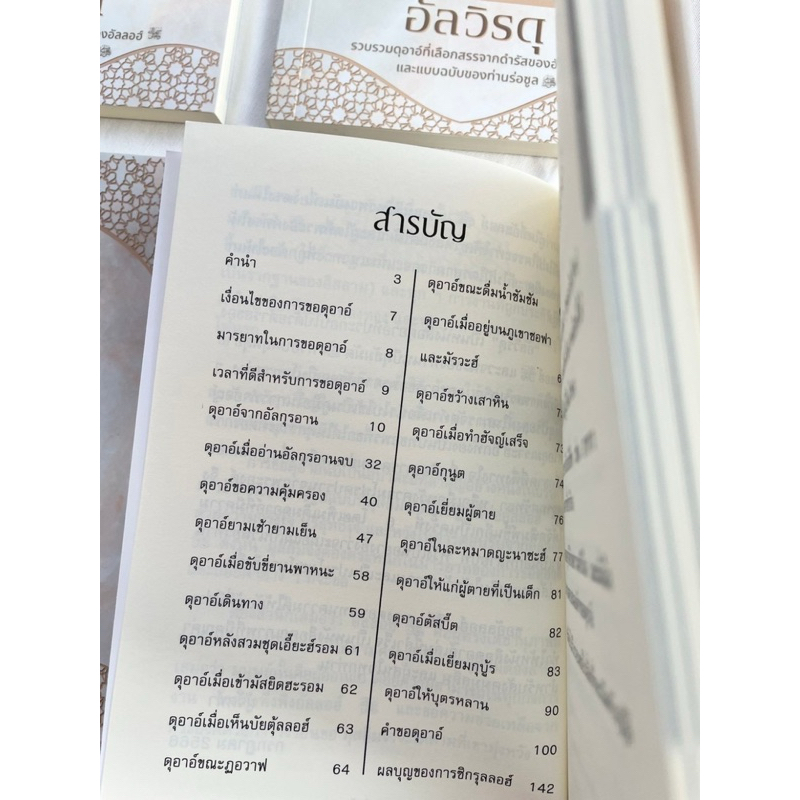 อัลวิรดุ
รวบรวมดุอาอ์ที่เลือกสรรจากดำรัสของ
และแบบฉบับของท่านร่อซูล ﷺ
สารบัญ
คำนำ 3
เงื่อนไขของการขอดุอาอ์ 7
มารยาทในการขอดุอาอ์ 8
เวลาที่ดีสำหรับการขอดุอาอ์ 9
ดุอาอ์จากอัลกุรอาน 10
ดุอาอ์เมื่ออ่านอัลกุรอานจบ 32
ดุอาอ์ขอความคุ้มครอง 40
ดุอาอ์ยามเช้ายามเย็น 47
ดุอาอ์เมื่อขับขี่ยานพาหนะ 58
ดุอาอ์เดินทาง 59
ดุอาอ์หลังสวมชุดเอี๊ยะฮ์รอม 61
ดุอาอ์เมื่อเข้ามัสยิดฮะรอม 62
ดุอาอ์เมื่อเห็นบัยตุ้ลลอฮ์ 63
ดุอาอ์ขณะฏอวาฟ 64
ดุอาอ์ขณะดื่มน้ำซัมซัม
ดุอาอ์เมื่ออยู่บนภูเขาซอฟา
และมัรวะฮ์
ดุอาอ์ขว้างเสาหิน
ดุอาอ์เมื่อทำฮัจญ์เสร็จ 73
ดุอาอ์กุนูต 74
ดุอาอ์เยี่ยมผู้ตาย 76
ดุอาอ์ในละหมาดญะนาซะฮ์ 77
ดุอาอ์ให้แก่ผู้ตายที่เป็นเด็ก 81
ดุอาอ์ตัสบี๊ต 82
ดุอาอ์เมื่อเยี่ยมกุบูร 83
ดุอาอ์ให้บุตรหลาน 90
คำขอดุอาอ์ 100
ผลบุญของการซิกรุลลอฮ์ 142